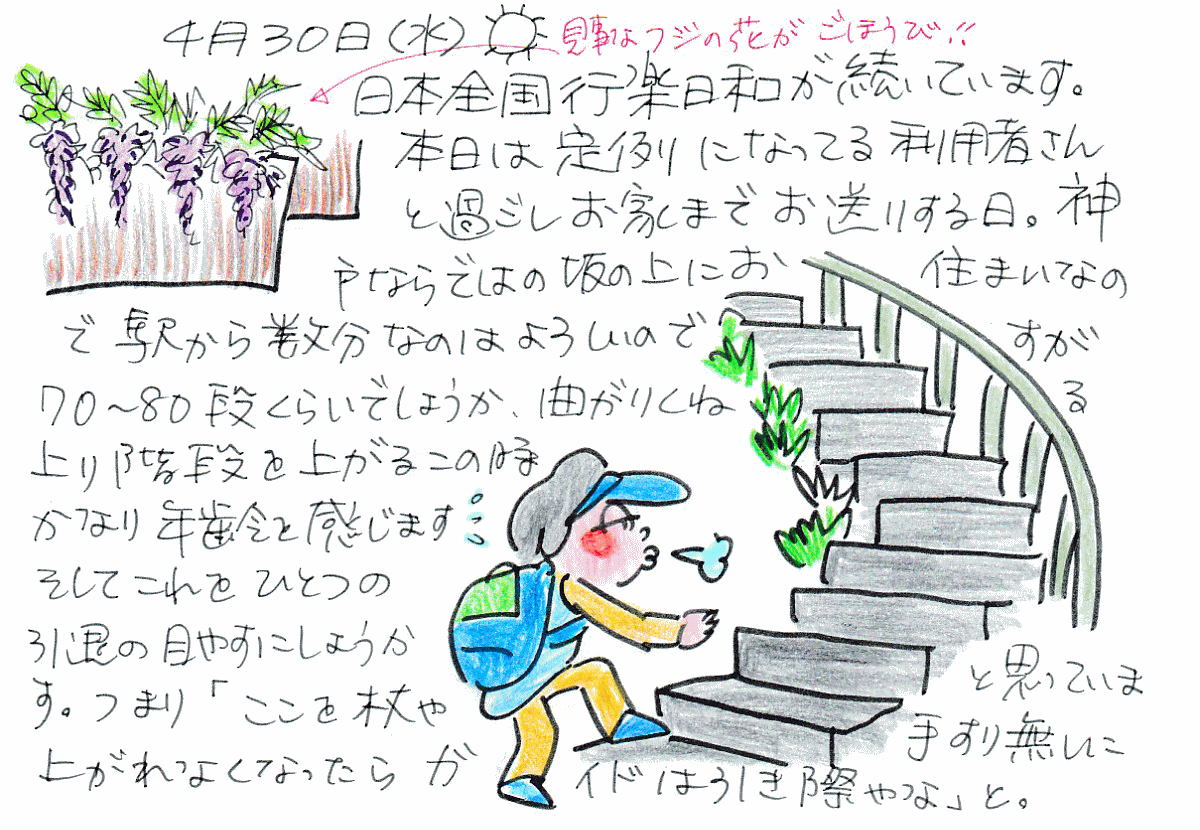 4月30日(水)
見事なフジの花がごほうび!!
日本全国行楽日和が続いています。
本日は定例になってる利用者さん
と過ごしお家までお送りする日。神
戸ならではの坂の上にお住まいなの
で駅から数分なのはよろしいのですが
70~80段くらいでしょうか、曲がりくねる
上り階段を上がるこの時
かなり年齢を感じます
そしてこれをひとつの
引退の目やすにしようかと思っていま
す。つまり「ここを杖や手すり無しに
上がれなくなったらガイドは引き際やな」と。